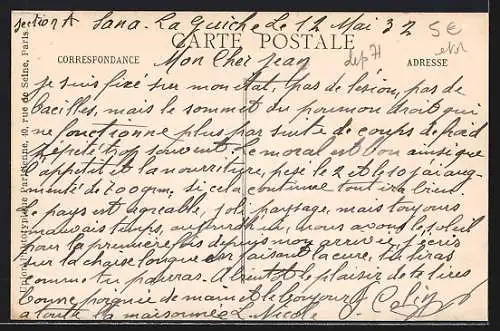 section A Sana. La Guiche Le 12 Mai 32 5€
CARTE POSTALE
CORRESPONDANCE ADRESSE
Mon Cher Jean dep 71
je suis fixé sur mon état, pas de lésion, pas de
bacilles, mais le sommet du poumon droit qui
ne fonctionne plus par suite de coups de froid
répétés trop souvent. Le moral est bon ainsi que
l'appétit et la nourriture, pesé le 2 et le 10 j'ai aug-
menté de 700 grm. si cela continue tout ira bien
le pays est agréable, joli paysage, mais toujours
mauvais temps, aujourd'hui, nous avons le soleil
pour la première fois depuis mon arrivée, j'écris
sur la chaise longue en faisant la cure, tu liras
comme tu pourras. A bientôt le plaisir de te lire
bonne poignée de main et le bonjour
a toute la maisonnée L. Nicole Colin
Union Phototypique Parisienne, 10, rue de Seine, Paris